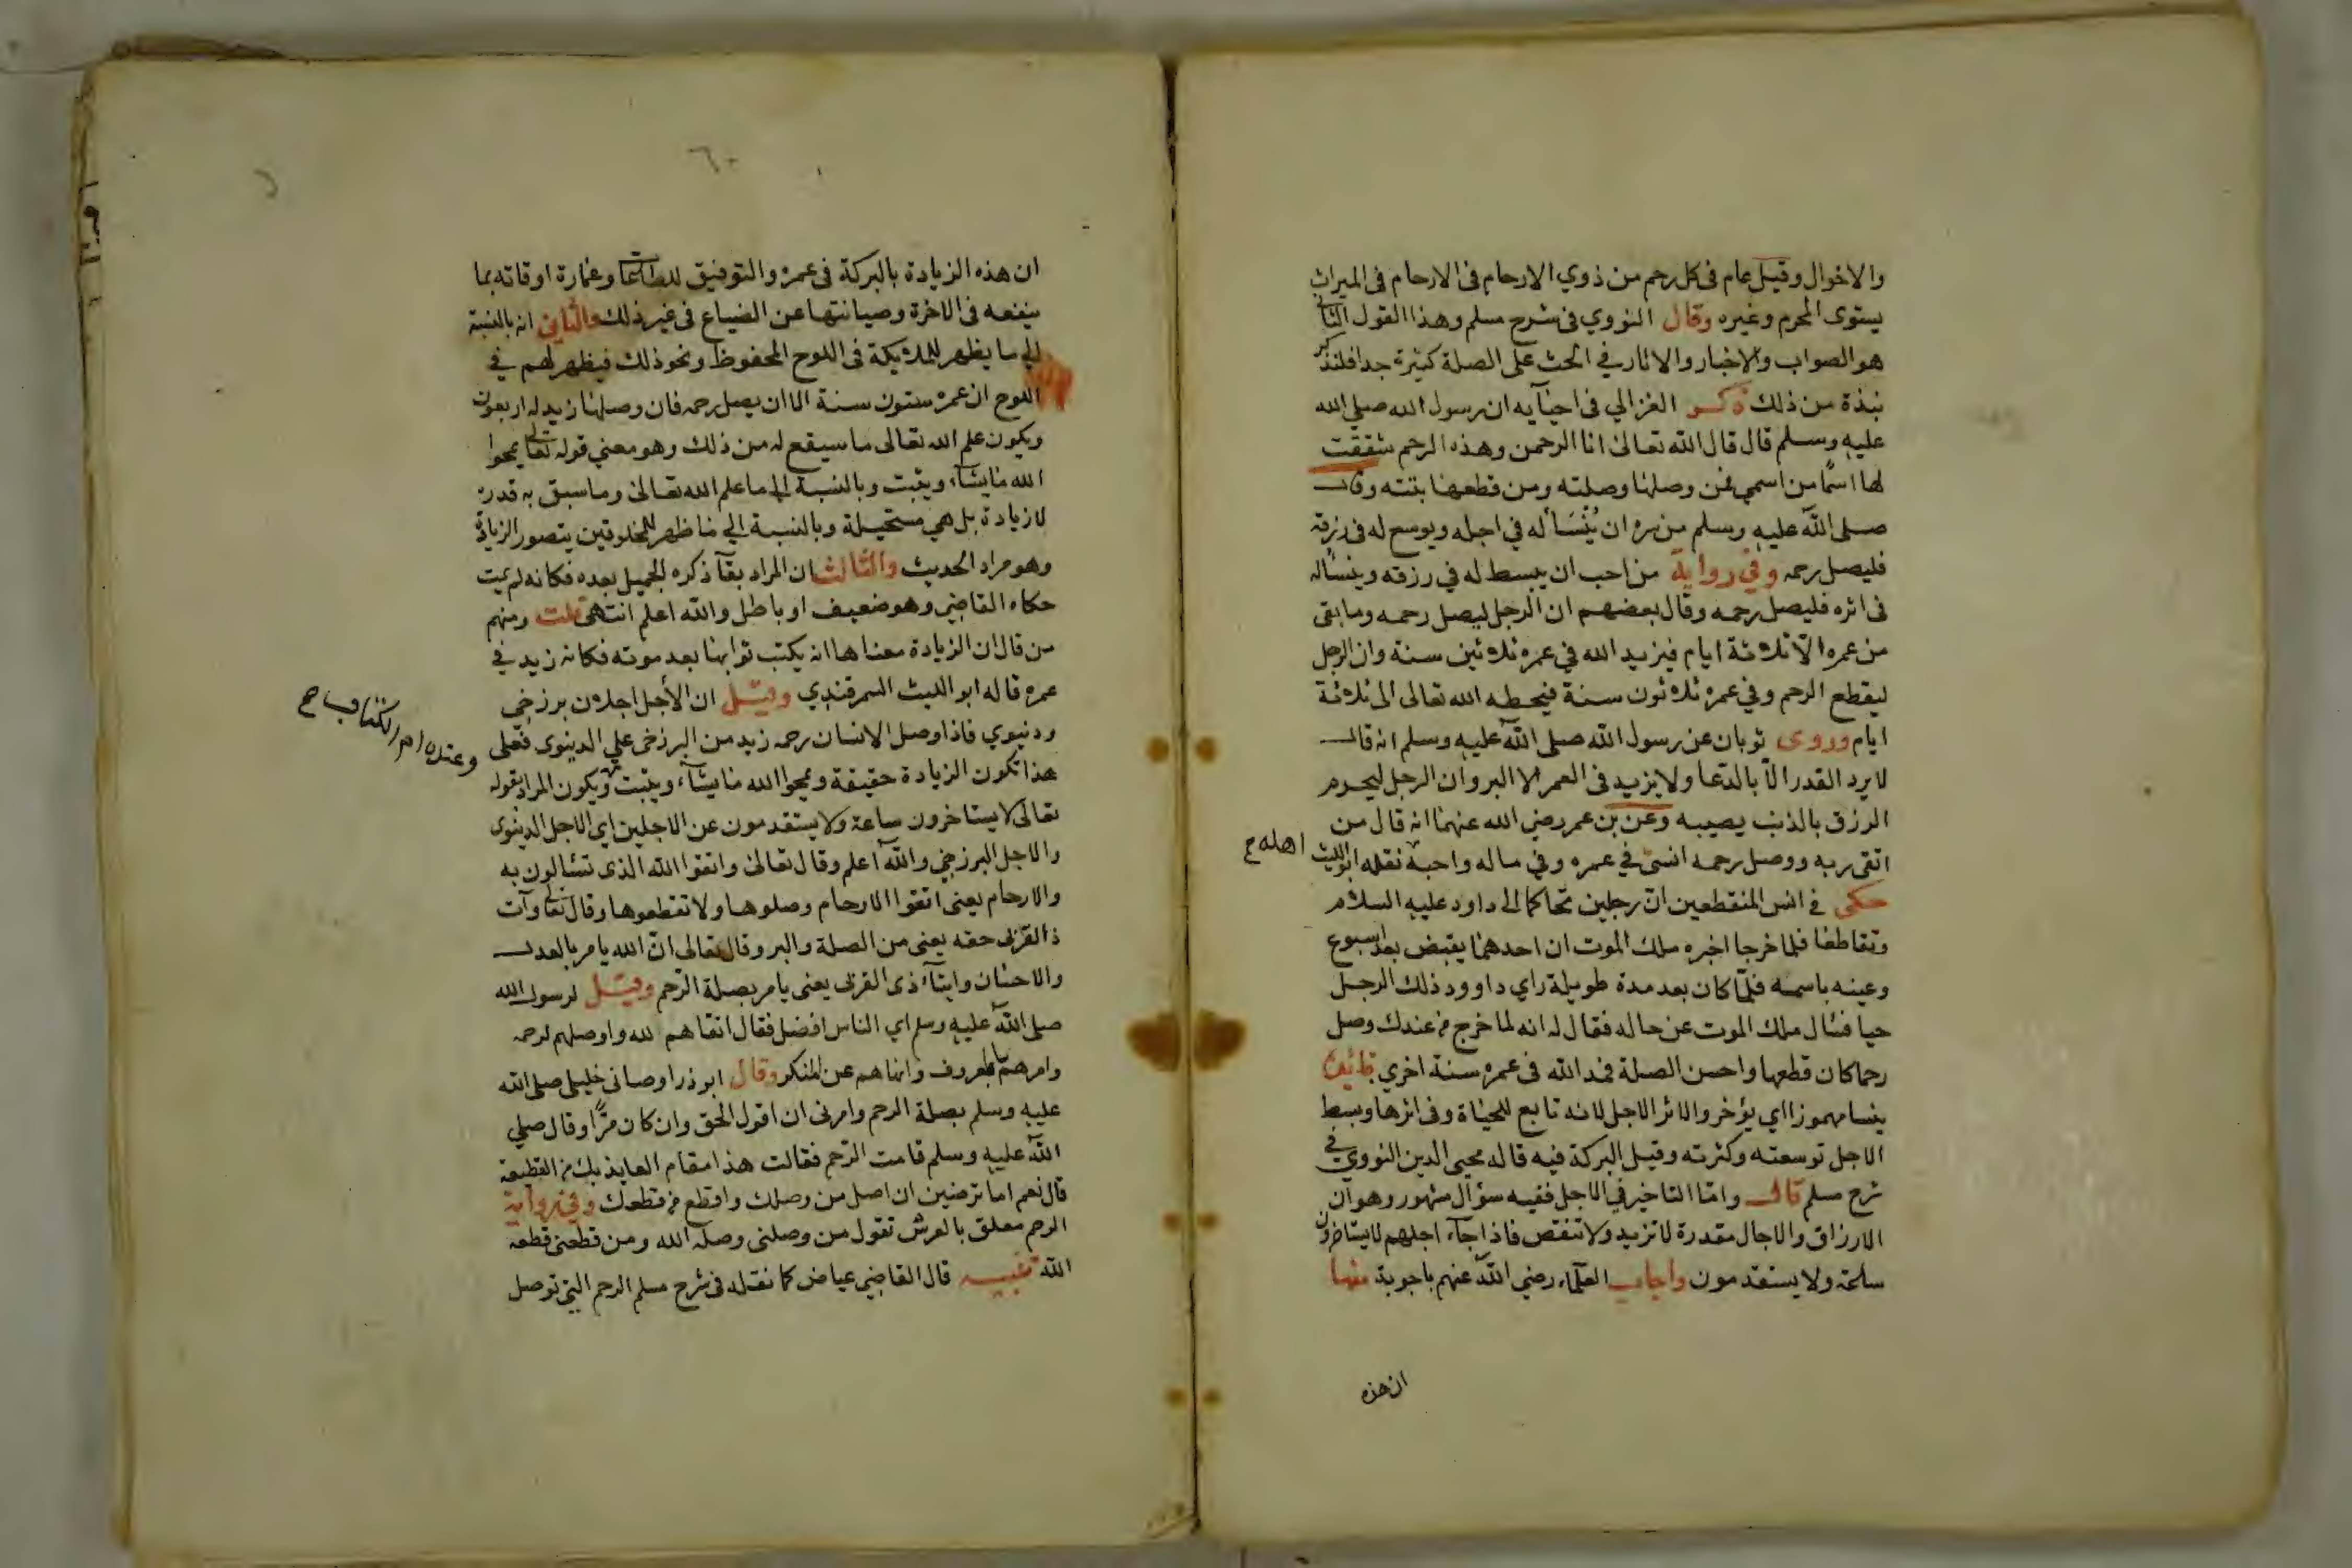 والاخوال وقيل عام فى كل رحم من ذوي الارحام فى الارحام فى الميراث
يستوى المحرم وغيره وقال النووي فى شرح مسلم وهذا القول الثانى
هو الصواب والاخبار والاثار في الحث على الصلة كثيرة جدا فلنذكر
نبذة من ذلك ذكر الغزالي فى احيآيه ان رسول الله صلى الله
عليه وسلم قال قال الله تعالى انا الرحمن وهذه الرحم شققت
لها اسمًا من اسمي فمن وصلها وصلته ومن قطعها بتته وقال
صلى الله عليه وسلم من سره ان يُنْسَأ له في اجله ويوسع له فى رزقه
فليصل رحمه وفي رواية من احب ان يبسط له في رزقه وينسأله
فى اثره فليصل رحمه وقال بعضهم ان الرجل ليصل رحمه وما بقى
من عمره الاّ ثلاثة ايام فيزيد الله في عمره ثلاثين سنة وان الرجل
ليقطع الرحم وفي عمره ثلاثون سنة فيحطه الله تعالى الى ثلاثة
ايام وروى ثوبان عن رسول الله صلى الله عليه وسلم انه قال
لا يرد القدر الاّ بالدعا ولا يزيد فى العمر الا البر وان الرجل ليحرم
الرزق بالذنب يصيبه وعن بن عمر رضي الله عنهما انه قال من
اتقى ربه ووصل رحمه انسئ في عمره وفي ماله واحبه نقله ابو الليث
اهله ح
حكى في انس المنقطعين انّ رجلين تحاكما الى داود عليه السلام
وتقاطعا فلما خرجا اخبره ملك الموت ان احدهما يقبض بعد اسبوع
وعينه باسمه فلمّا كان بعد مدة طويلة راي داوود ذلك الرجل
حيا فسال ملك الموت عن حاله فقال له انه لما خرج من عندك وصل
رحما كان قطعها واحسن الصلة فمد الله فى عمره سنة اخري
ينسا مهموزا اي يؤخر والاثر الاجل لانه تابع للحياة وفى اثرها وبسط
الاجل توسعته وكثرته وقيل البركة فيه قاله محيى الدين النووي في
شرح مسلم قال وامّا التاخير في الاجل ففيه سؤال مشهور وهو ان
الارزاق والاجال مقدرة لا تزيد ولا تنقص فاذا جآء اجلهم لا يستاخرون
ساعة ولا يستقدمون واجاب العلمآء رضي الله عنهم باجوبة منها
ان هذه
٦٠
ان هذه الزيادة بالبركة فى عمره والتوفيق للطاعات وعمارة اوقاته بما
ينفعه فى الاخرة وصيانتها عن الضياع فى غير ذلك والثانى انه بالنسبة
الي ما يظهر للملايكة فى اللوح المحفوظ ونحو ذلك فيظهر لهم في
اللوح ان عمره ستون سنة الا ان يصل رحمه فان وصلها زيد له اربعون
ويكون علم الله تعالى ما سيقع له من ذلك وهو معني قوله تعالى يمحوا
الله ما يشآء ويثبت وبالنسبة الي ما علم الله تعالى وما سبق به قدره
لا زيادة بل هي مستحيلة وبالنسبة الي ما ظهر للمخلوقين يتصور الزيادة
وهو مراد الحديث والثالث ان المراد بقآ ذكره الجميل بعده فكانه لم يمت
حكاه القاضي وهو ضعيف او باطل والله اعلم انتهى قلت ومنهم
من قال ان الزيادة معناها انه يكتب ثوابها بعد موته فكانه زيد في
عمره قاله ابو الليث السمرقندي وقيل ان الأجل اجلان برزخي
ودنيوي فاذا وصل الانسان رحمه زيد من البرزخى علي الدنيوى فعلى
هذا تكون الزيادة حقيقة ويمحوا الله ما يشآء ويثبت ويكون المراد بقوله
وعنده ام الكتاب ح
تعالى لا يستاخرون ساعة ولا يستقدمون عن الاجلين اي الاجل الدنيوى
والاجل البرزخي والله اعلم وقال تعالى واتقوا الله الذى تسئالون به
والارحام يعنى اتقوا الارحام وصلوها ولا تقطعوها وقال تعالى وآت
ذا القربى حقه يعنى من الصلة والبر وقال تعالى انّ الله يامر بالعدل
والاحسان وايتآء ذى القربى يعنى يامر بصلة الرّحم وقيل لرسول الله
صلى الله عليه وسلم اي الناس افضل فقال اتقاهم لله واوصلهم لرحمه
وامرهم بالمعروف وانهاهم عن المنكر وقال ابو ذر اوصانى خليلى صلى الله
عليه وسلم بصلة الرحم وامرنى ان اقول الحق وان كان مرًّا وقال صلي
الله عليه وسلم قامت الرّحم فقالت هذا مقام العايذ بك من القطيعة
قال نعم اما ترضين ان اصل من وصلك واقطع من قطعك وفي رواية
الرحم معلق بالعرش تقول من وصلنى وصله الله ومن قطعنى قطعه
الله تنبيه قال القاضي عياض كما نقله فى شرح مسلم الرحم التي توصل